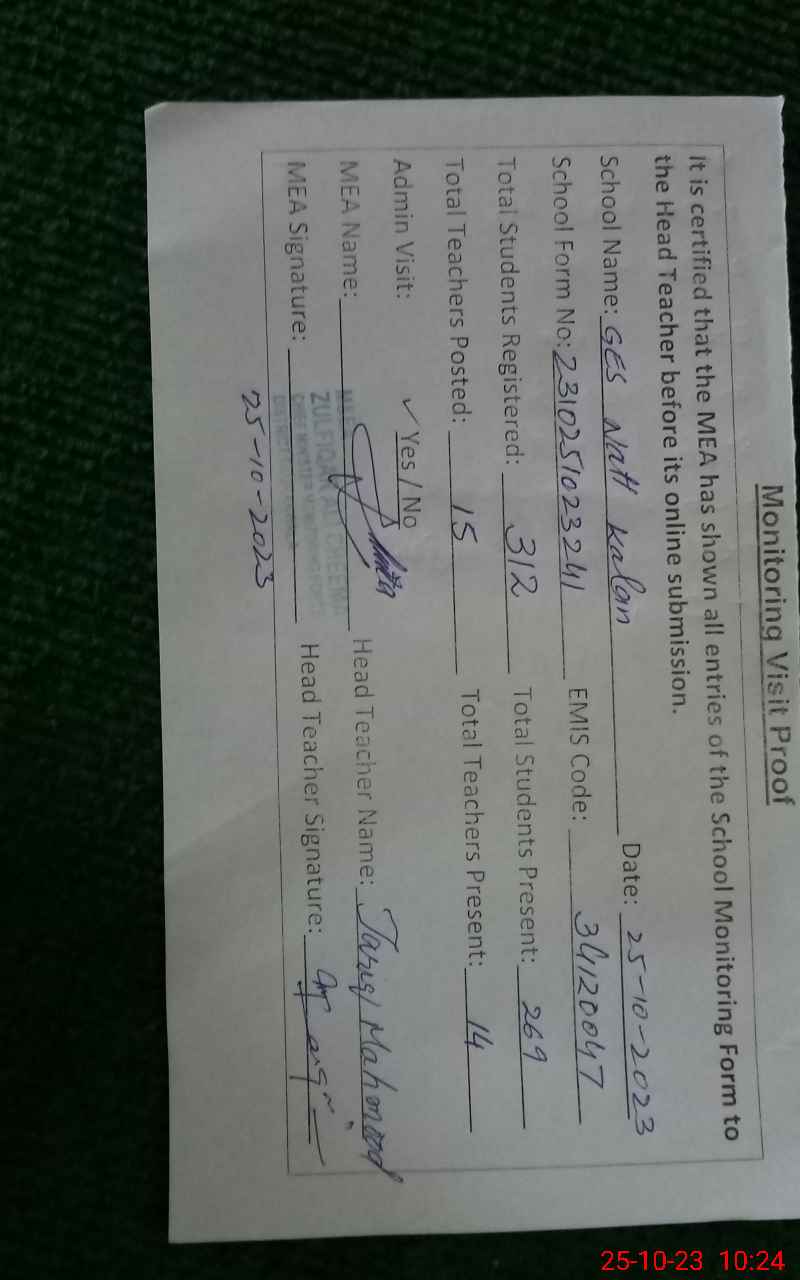 Monitoring Visit Proof
It is certified that the MEA has shown all entries of the School Monitoring Form to
the Head Teacher before its online submission.
School Name: GES Natt Kalan Date: 25-10-2023
School Form No: 2310251023241 EMIS Code: 34120047
Total Students Registered: 312 Total Students Present: 269
Total Teachers Posted: 15 Total Teachers Present: 14
Admin Visit: ✓ Yes / No
MEA Name: Head Teacher Name: Tariq Mahmood
ZULFIQAR ALI CHEEMA
MEA Signature: Head Teacher Signature: Tariq
25-10-2023
25-10-23 10:24